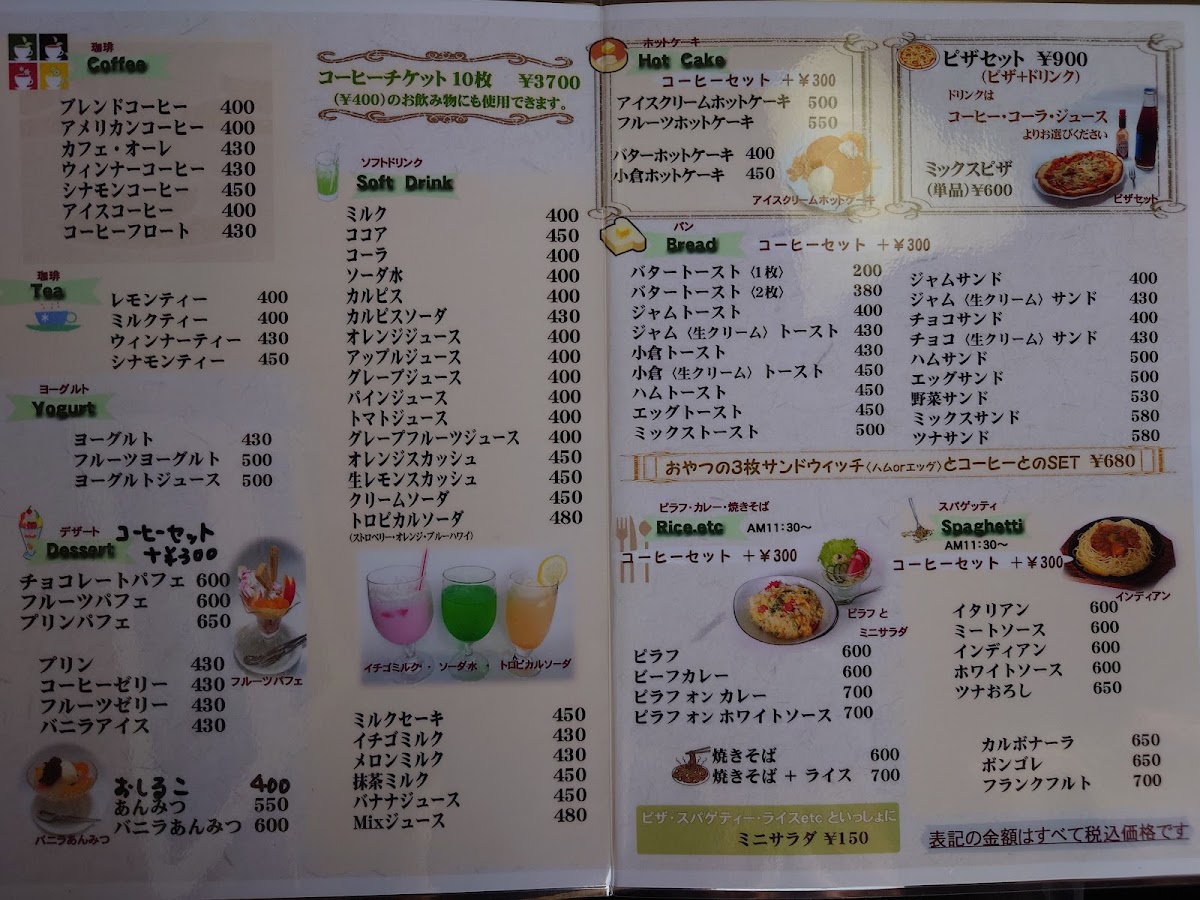 珈琲
Coffee
ブレンドコーヒー 400
アメリカンコーヒー 400
カフェ・オーレ 430
ウィンナーコーヒー 430
シナモンコーヒー 450
アイスコーヒー 400
コーヒーフロート 430
珈琲
Tea
レモンティー 400
ミルクティー 400
ウィンナーティー 430
シナモンティー 450
ヨーグルト
Yogurt
ヨーグルト 430
フルーツヨーグルト 500
ヨーグルトジュース 500
デザート
Dessert
コーヒーセット
+¥300
チョコレートパフェ 600
フルーツパフェ 600
プリンパフェ 650
プリン 430
コーヒーゼリー 430
フルーツゼリー 430
バニラアイス 430
フルーツパフェ
おしるこ 400
あんみつ 550
バニラあんみつ 600
バニラあんみつ
コーヒーチケット 10枚 ¥3700
(¥400)のお飲み物にも使用できます。
ソフトドリンク
Soft Drink
ミルク 400
ココア 450
コーラ 400
ソーダ水 400
カルピス 400
カルピスソーダ 430
オレンジジュース 400
アップルジュース 400
グレープジュース 400
パインジュース 400
トマトジュース 400
グレープフルーツジュース 400
オレンジスカッシュ 450
生レモンスカッシュ 450
クリームソーダ 450
トロピカルソーダ 480
(ストロベリー・オレンジ・ブルーハワイ)
イチゴミルク ・ ソーダ水 ・ トロピカルソーダ
ミルクセーキ 450
イチゴミルク 430
メロンミルク 430
抹茶ミルク 450
バナナジュース 450
Mixジュース 480
ホットケーキ
Hot Cake
コーヒーセット +¥300
アイスクリームホットケーキ 500
フルーツホットケーキ 550
バターホットケーキ 400
小倉ホットケーキ 450
アイスクリームホットケーキ
ピザセット ¥900
(ピザ+ドリンク)
ドリンクは
コーヒー・コーラ・ジュース
よりお選びください
ミックスピザ
(単品)¥600
ピザセット
パン
Bread
コーヒーセット +¥300
バタートースト〈1枚〉 200
バタートースト〈2枚〉 380
ジャムトースト 400
ジャム〈生クリーム〉トースト 430
小倉トースト 430
小倉〈生クリーム〉トースト 450
ハムトースト 450
エッグトースト 450
ミックストースト 500
ジャムサンド 400
ジャム〈生クリーム〉サンド 430
チョコサンド 400
チョコ〈生クリーム〉サンド 430
ハムサンド 500
エッグサンド 500
野菜サンド 530
ミックスサンド 580
ツナサンド 580
おやつの3枚サンドウイッチ〈ハムorエッグ〉とコーヒーとのSET ¥680
ピラフ・カレー・焼きそば
Rice.etc AM11:30〜
コーヒーセット +¥300
ピラフ と
ミニサラダ
ピラフ 600
ビーフカレー 600
ピラフ オン カレー 700
ピラフ オン ホワイトソース 700
焼きそば 600
焼きそば + ライス 700
ピザ・スパゲティー・ライスetc といっしょに
ミニサラダ ¥150
スパゲッティ
Spaghetti
AM11:30〜
コーヒーセット +¥300
インディアン
イタリアン 600
ミートソース 600
インディアン 600
ホワイトソース 600
ツナおろし 650
カルボナーラ 650
ボンゴレ 650
フランクフルト 700
表記の金額はすべて税込価格です